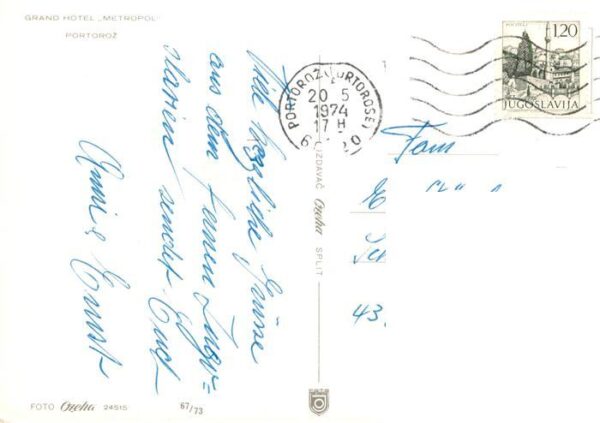 GRAND HOTEL „METROPOL"
PORTOROŽ
Viele herzliche Grüsse
aus dem fernen Jugo=
slavien sendet Euch
Anni & Ernst
PORTOROŽ-PORTOROSE
20 5
1974
17 H
6 20
1,20
JUGOSLAVIJA
Fam
E
43.
IZDAVAČ Ozeha SPLIT
FOTO Ozeha 24515 67/73